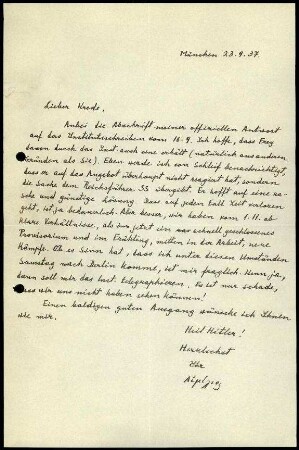 München 23.9.37.
Lieber Krode,
Anbei die Abschrift meiner offiziellen Antwort
auf das Institutsschreiben vom 16.9. Ich hoffe, dass Frey
davon durch das Inst. auch eine erhält (natürlich aus anderen
Gründen als Sie). Eben werde ich von Schleif benachrichtigt,
dass er auf das Angebot überhaupt nicht reagiert hat, sondern
die Sache dem Reichsführer SS übergibt. Er hofft auf eine ra-
sche und günstige Lösung. Dass auf jeden Fall Zeit verloren
geht, ist ja bedauerlich. Aber besser, wir haben vom 1.11. ab
klare Verhältnisse, als nun jetzt ein rasch geschlossenes
Provisorium und im Frühling, mitten in der Arbeit, neue
Kämpfe. Ob es Sinn hat, dass ich unter diesen Umständen
Samstag nach Berlin komme, ist mir fraglich. Nun ja,
dann soll mir das Inst. telegraphieren. Es ist nur schade,
dass wir uns nicht haben sehen können!
Einen baldigen guten Ausgang wünsche ich Ihnen
wie mir.
Heil Hitler!
Herzlichst
Ihr